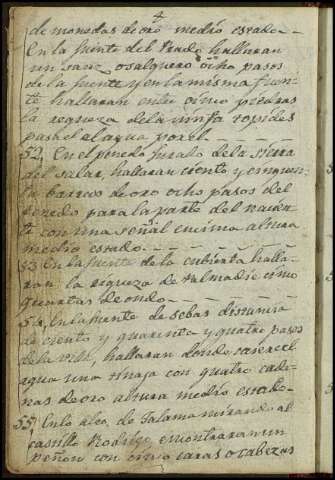 4
de monedas de oro medio estado
En la fuente del Prado hallaran
un sauz osalguero ocho pasos
de la fuente y en la misma fuen-
te hallaran entre cinco piedras
la riqueza de la ninfa
pasa el agua por el
52, En el penedo furado de la sierra
del salar, hallaran ciento y cinquen-
ta barras de oro ocho pasos del
penedo para la parte del nacien
te con una señal encima altura
medio estado
53 En la fuente de la cubierta halla-
ran la riqueza de Almadie cinco
quartas de ondo
54, En la fuente de sebas distancia
de ciento y quarenta y quatro pasos
de la villa, hallaran donde cae el
agua una tinaja con quatro cade-
nas de oro altura medio estado
55, Enlo alto de Talama mirando al
castillo Rodrigo encontraran un
peñon con cinco caras o cabezas